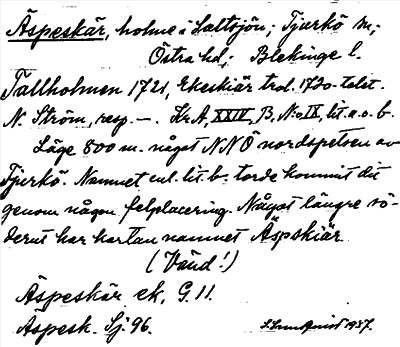 Äspeskär, holme i Saltsjön; Tjurkö sn;
Östra hd; Blekinge l.
Tallholmen 1721, Ekeskiär trol. 1730-talet.
N. Ström, resp. —. Kr A, XXIV, B, No IX, lit. a. o. b.
Läge 800 m. något NNÖ nordspetsen av
Tjurkö. Namnet enl. lit. b. torde kommit dit
genom någon felplacering. Något längre sö-
derut har kartan namnet Äspskiär
(Vänd!)
Äspeskär ek, G. 11.
Äspesk. Sj 96.
1937.